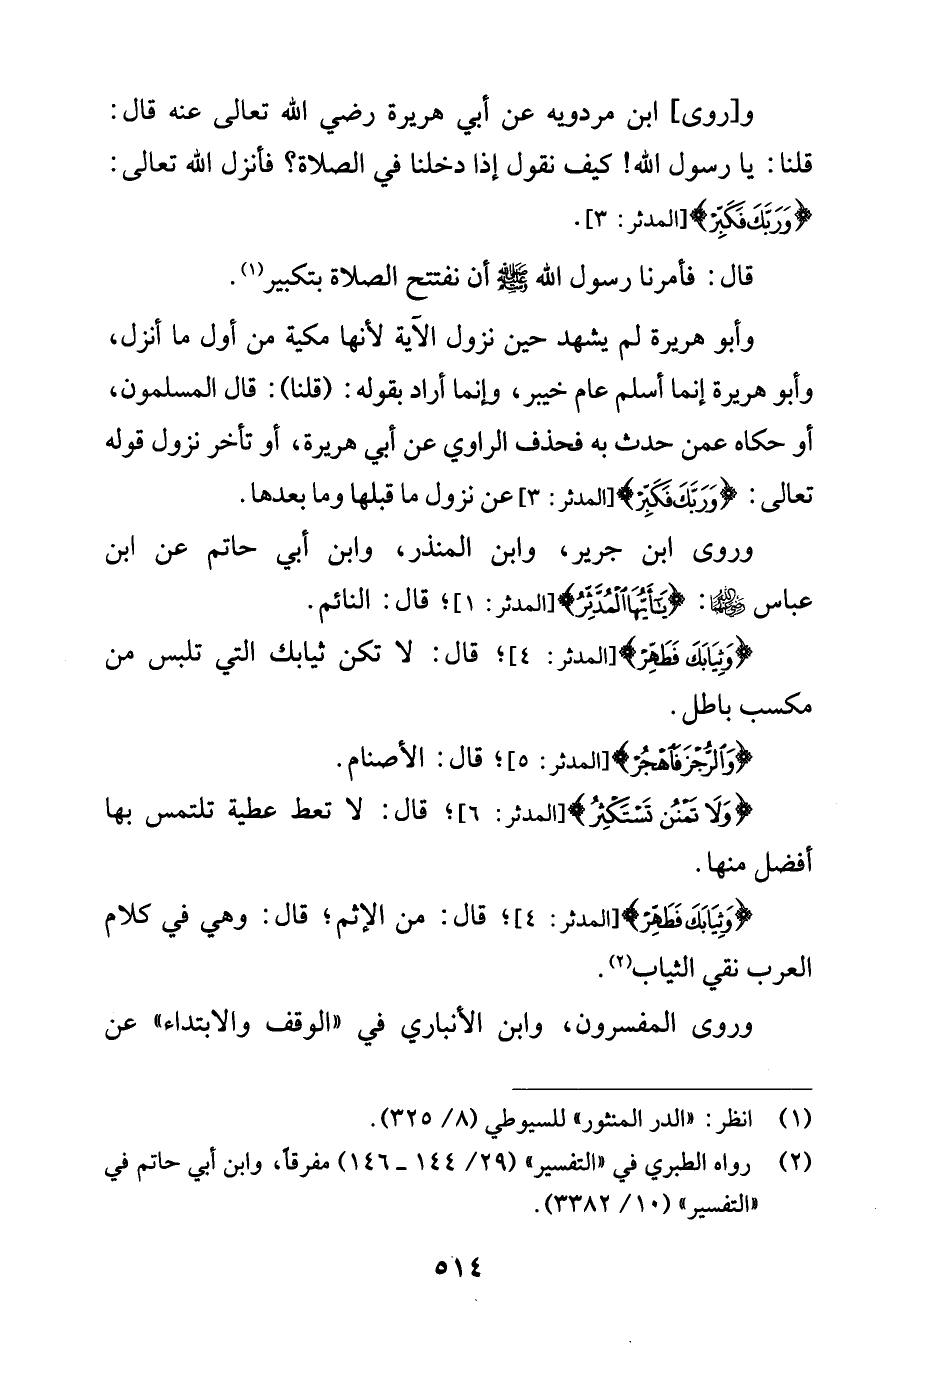 و[روى] ابن مردويه عن أبي هريرة رضي الله تعالى عنه قال:
قلنا: يا رسول الله! كيف نقول إذا دخلنا في الصلاة؟ فأنزل الله تعالى:
﴿وَرَبَّكَ فَكَبِّرْ﴾[المدثر: ٣].
قال: فأمرنا رسول الله ﷺ أن نفتتح الصلاة بتكبير(١).
وأبو هريرة لم يشهد حين نزول الآية لأنها مكية من أول ما أنزل،
وأبو هريرة إنما أسلم عام خيبر، وإنما أراد بقوله: (قلنا): قال المسلمون،
أو حكاه عمن حدث به فحذف الراوي عن أبي هريرة، أو تأخر نزول قوله
تعالى: ﴿وَرَبَّكَ فَكَبِّرْ﴾[المدثر: ٣] عن نزول ما قبلها وما بعدها.
وروى ابن جرير، وابن المنذر، وابن أبي حاتم عن ابن
عباس رضي الله عنهما: ﴿يَٰٓأَيُّهَا ٱلْمُدَّثِّرُ﴾[المدثر: ١]؛ قال: النائم.
﴿وَثِيَابَكَ فَطَهِّرْ﴾[المدثر: ٤]؛ قال: لا تكن ثيابك التي تلبس من
مكسب باطل.
﴿وَٱلرُّجْزَ فَٱهْجُرْ﴾[المدثر: ٥]؛ قال: الأصنام.
﴿وَلَا تَمْنُن تَسْتَكْثِرُ﴾[المدثر: ٦]؛ قال: لا تعط عطية تلتمس بها
أفضل منها.
﴿وَثِيَابَكَ فَطَهِّرْ﴾[المدثر: ٤]؛ قال: من الإثم؛ قال: وهي في كلام
العرب نقي الثياب(٢).
وروى المفسرون، وابن الأنباري في «الوقف والابتداء» عن
(١) انظر: «الدر المنثور» للسيوطي (٨/ ٣٢٥).
(٢) رواه الطبري في «التفسير» (٢٩/ ١٤٤ ـ ١٤٦) مفرقاً، وابن أبي حاتم في
«التفسير» (١٠/ ٣٣٨٢).
٥١٤